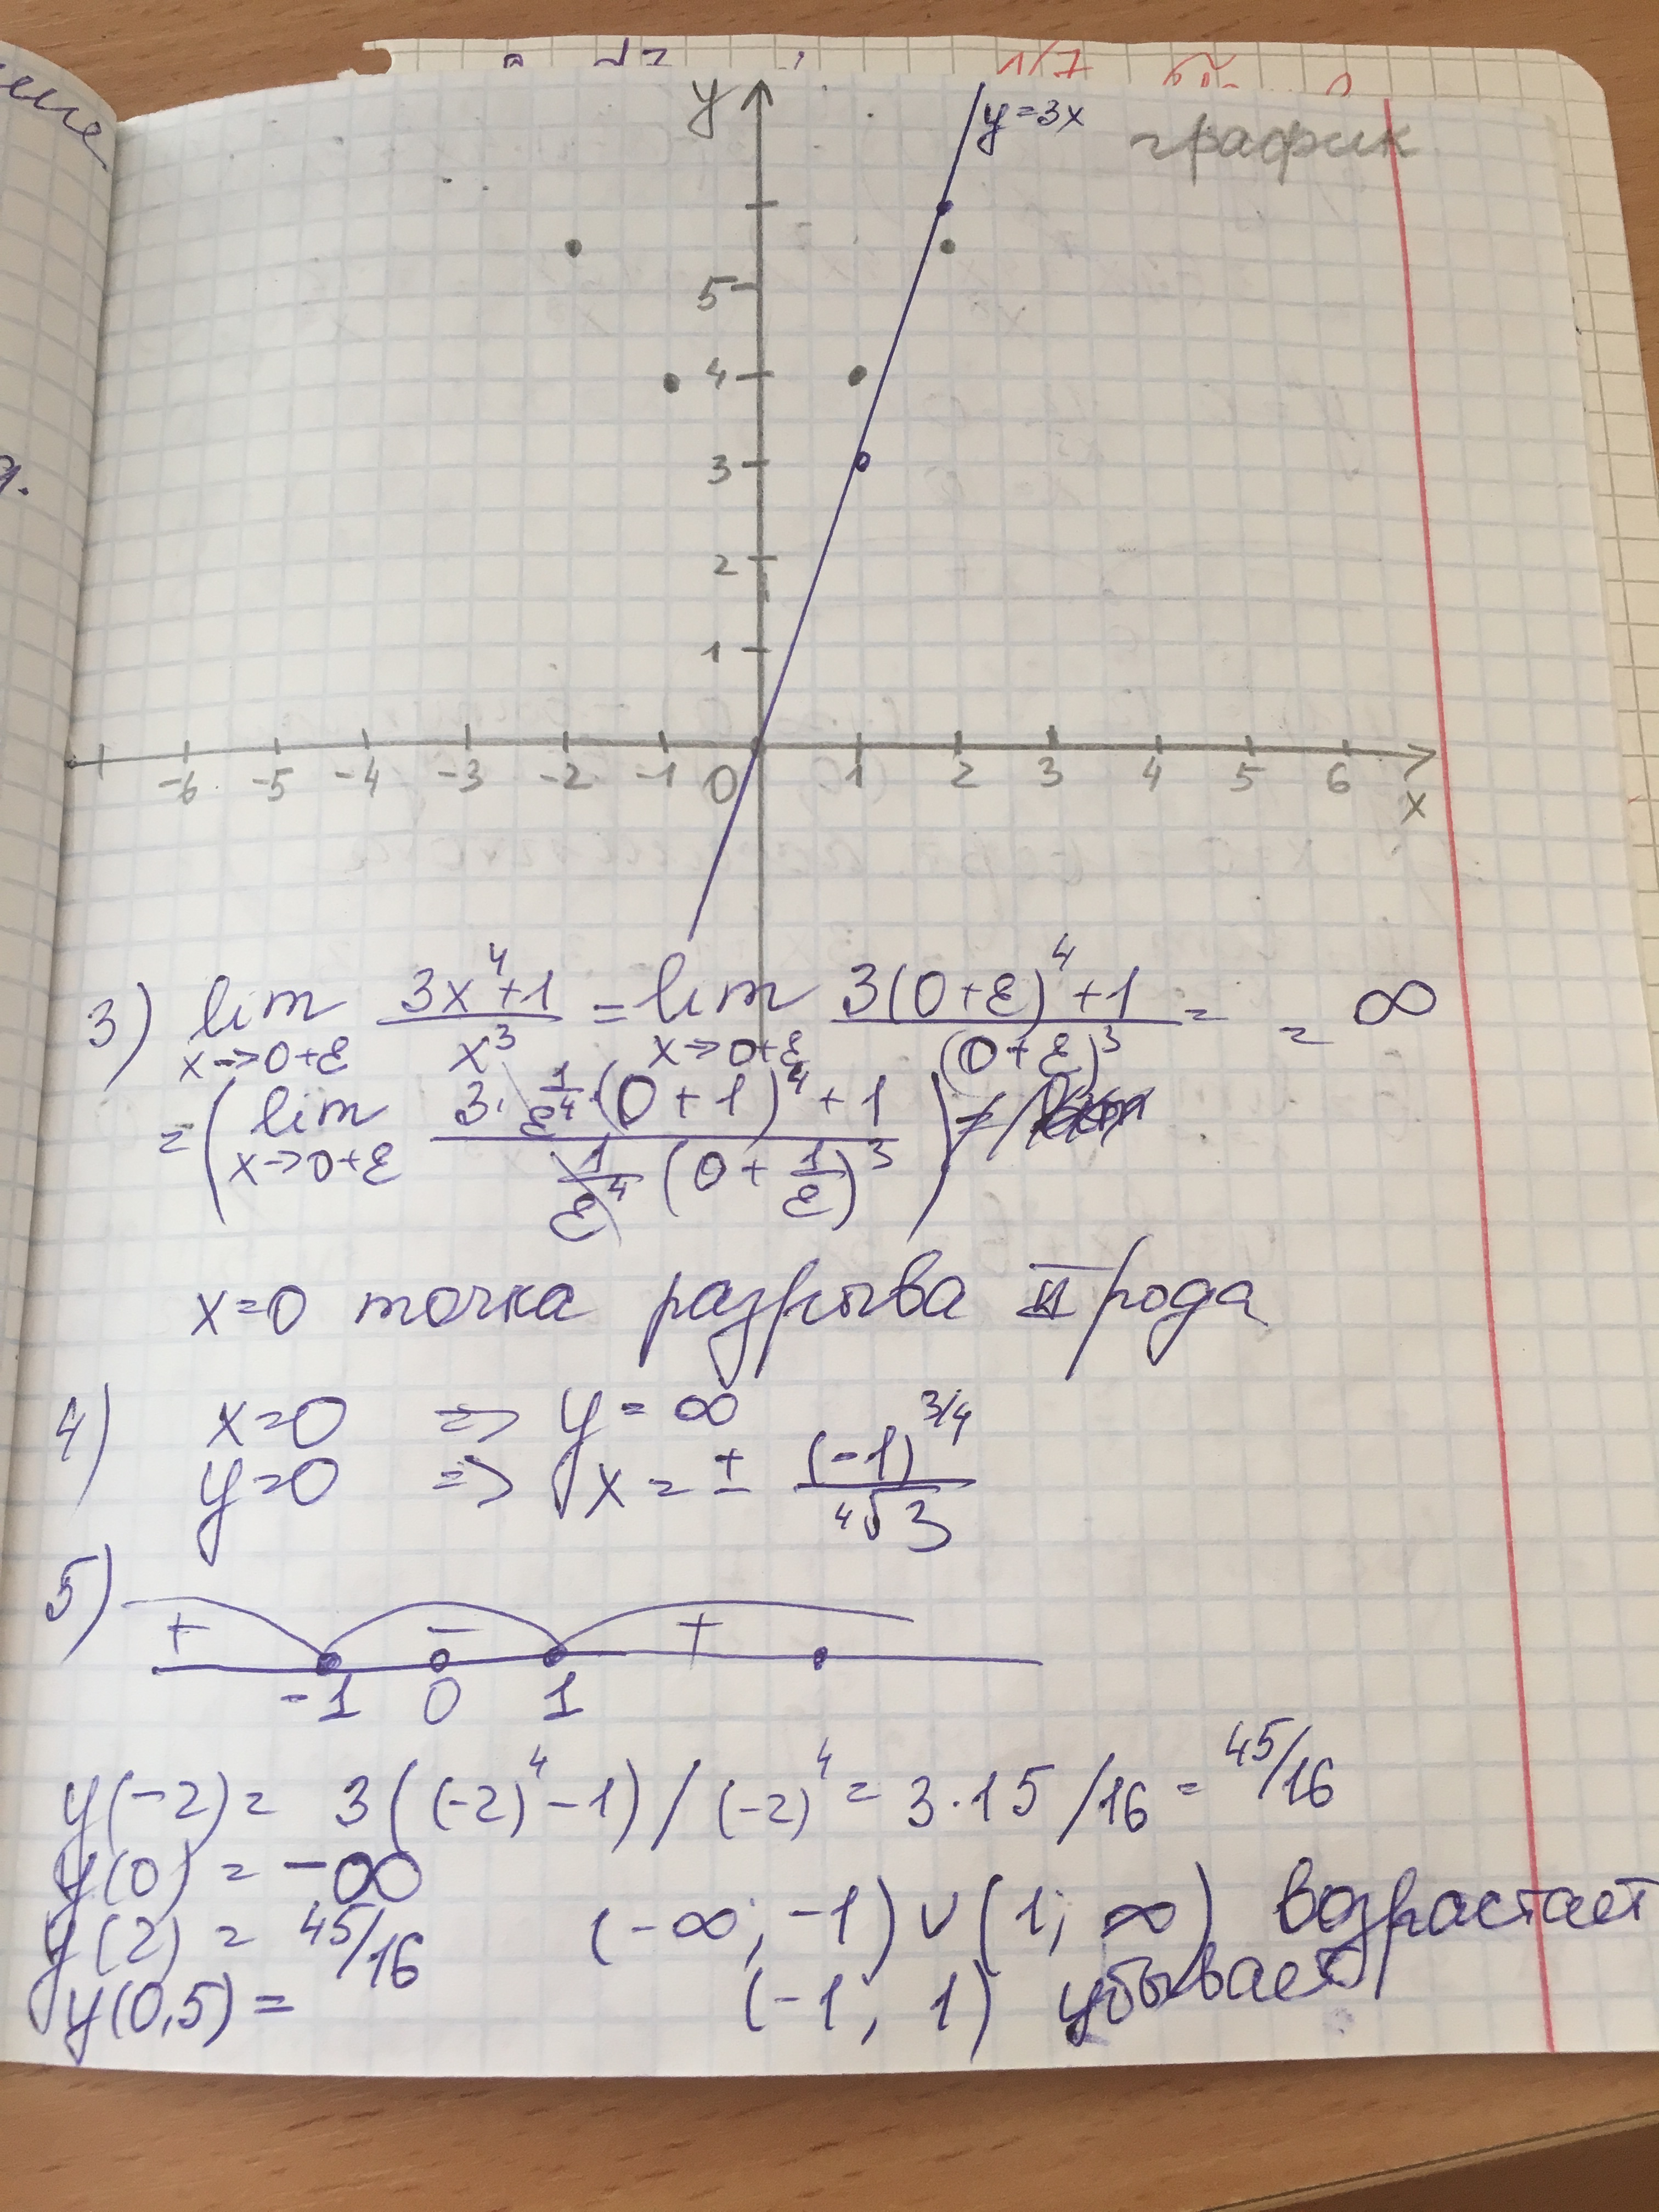 y y=3x график
5
4
3
2
1
-6 -5 -4 -3 -2 -1 0 1 2 3 4 5 6 x
3) lim x→0+ε (3x⁴+1)/x³ = lim x→0+ε (3(0+ε)⁴+1)/(0+ε)³ = = ∞
= ( lim x→0+ε (3·1/ε⁴·(0+1)⁴+1)/(1/ε⁴(0+1/ε)³) ) =
x=0 точка разрыва II рода
4) x=0 => y=∞
y=0 => x=± (-1)^3/4 / ⁴√3
5) + − +
-1 0 1
y(-2) = 3((-2)⁴-1)/(-2)⁴ = 3·15/16 = 45/16
y(0) = -∞
y(2) = 45/16 (-∞; -1) ∪ (1; ∞) возрастает
y(0,5) = (-1; 1) убывает